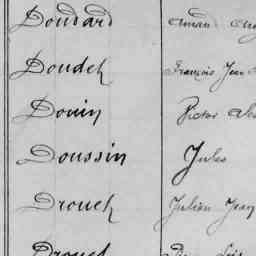 Doudard Amand
Doudet François Jean
Douin Victor
Doussin Jules
Drouet Julien Jean
Drouet